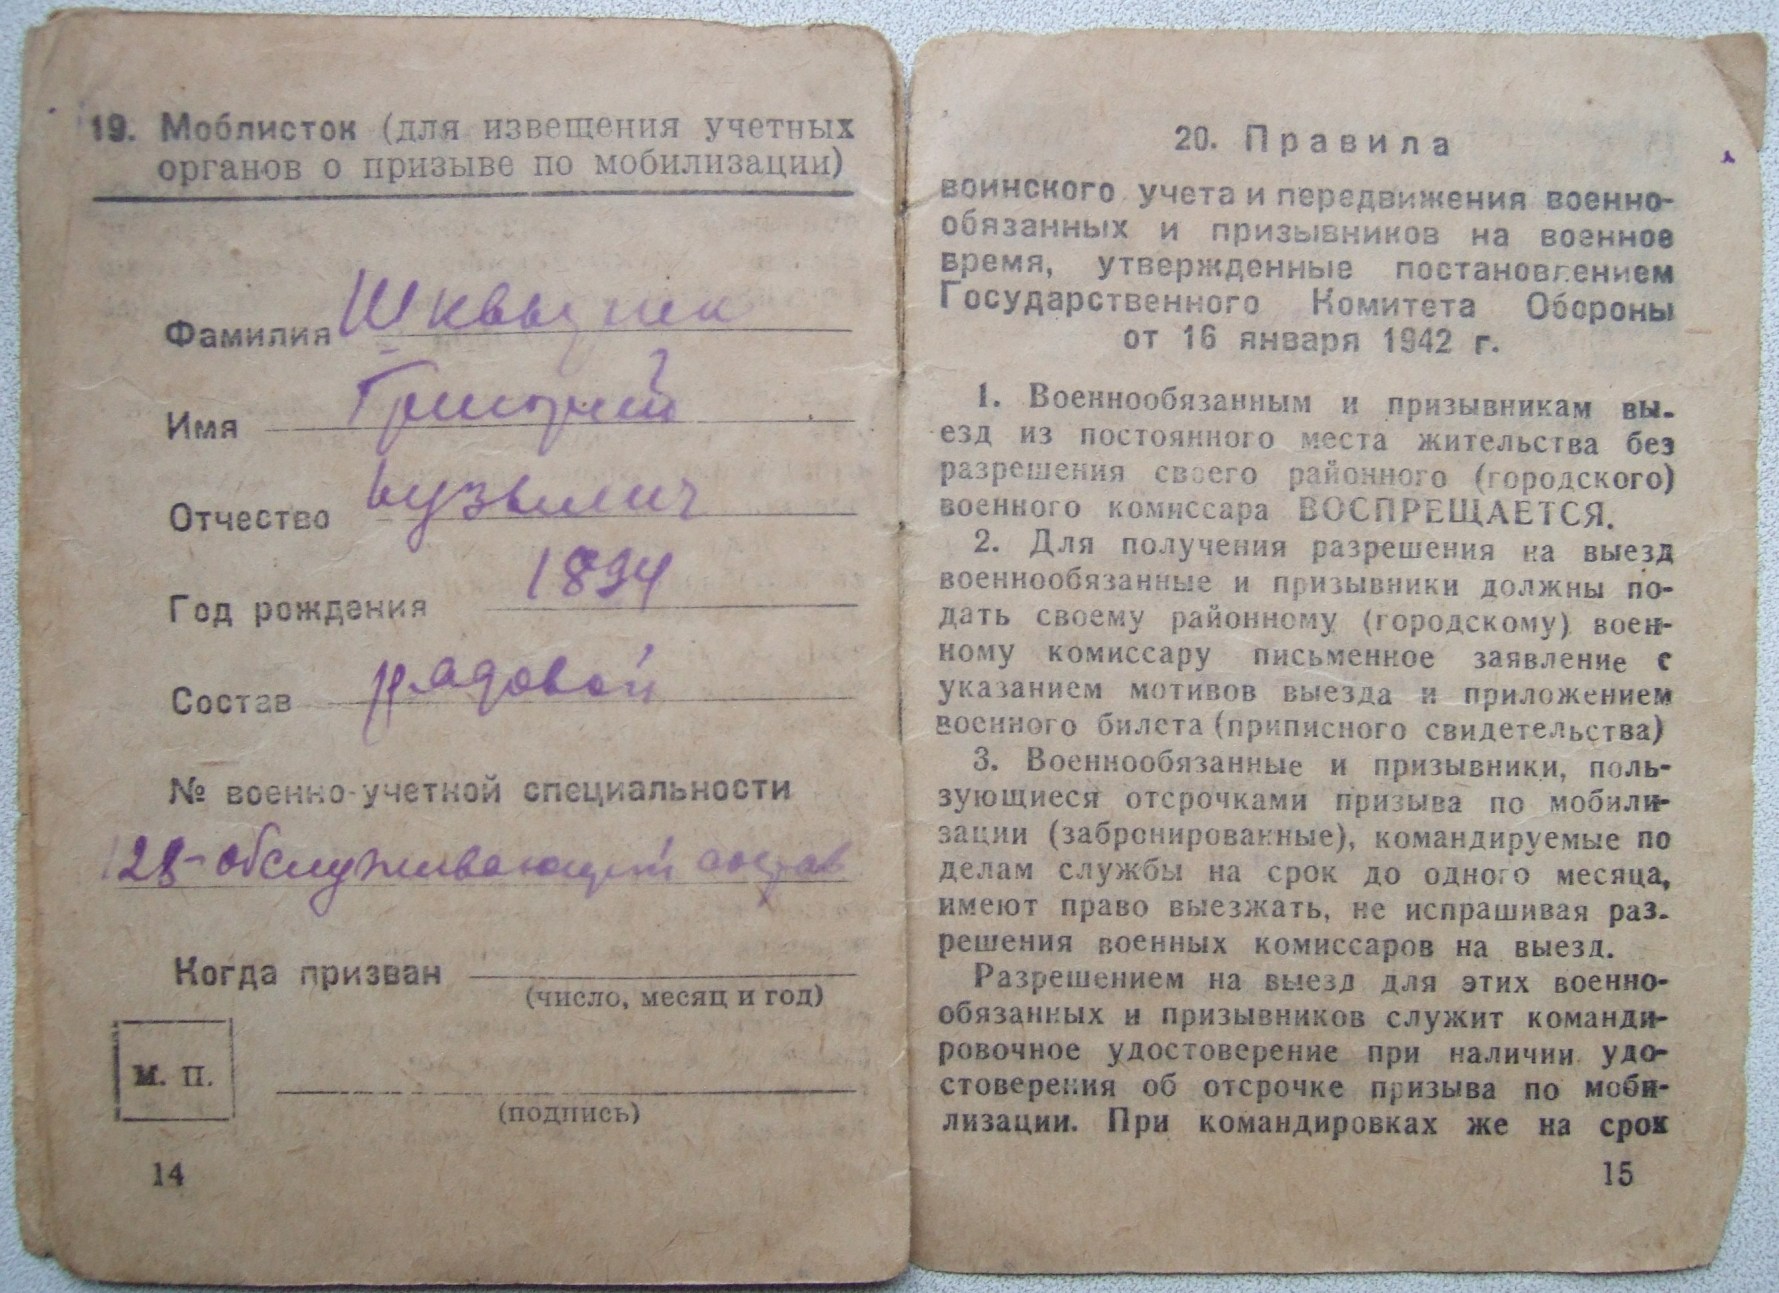 19. Моблисток (для извещения учетных
органов о призыве по мобилизации)
Фамилия
Имя Григорий
Отчество Кузьмич
Год рождения 1894
Состав рядовой
№ военно-учетной специальности
128 - обслуживающий состав
Когда призван
(число, месяц и год)
М. П.
(подпись)
14
20. Правила
воинского учета и передвижения военно-
обязанных и призывников на военное
время, утвержденные постановлением
Государственного Комитета Обороны
от 16 января 1942 г.
1. Военнообязанным и призывникам вы-
езд из постоянного места жительства без
разрешения своего районного (городского)
военного комиссара ВОСПРЕЩАЕТСЯ.
2. Для получения разрешения на выезд
военнообязанные и призывники должны по-
дать своему районному (городскому) воен-
ному комиссару письменное заявление с
указанием мотивов выезда и приложением
военного билета (приписного свидетельства)
3. Военнообязанные и призывники, поль-
зующиеся отсрочками призыва по мобили-
зации (забронированные), командируемые по
делам службы на срок до одного месяца,
имеют право выезжать, не испрашивая раз-
решения военных комиссаров на выезд.
Разрешением на выезд для этих военно-
обязанных и призывников служит команди-
ровочное удостоверение при наличии удо-
стоверения об отсрочке призыва по моби-
лизации. При командировках же на срок
15